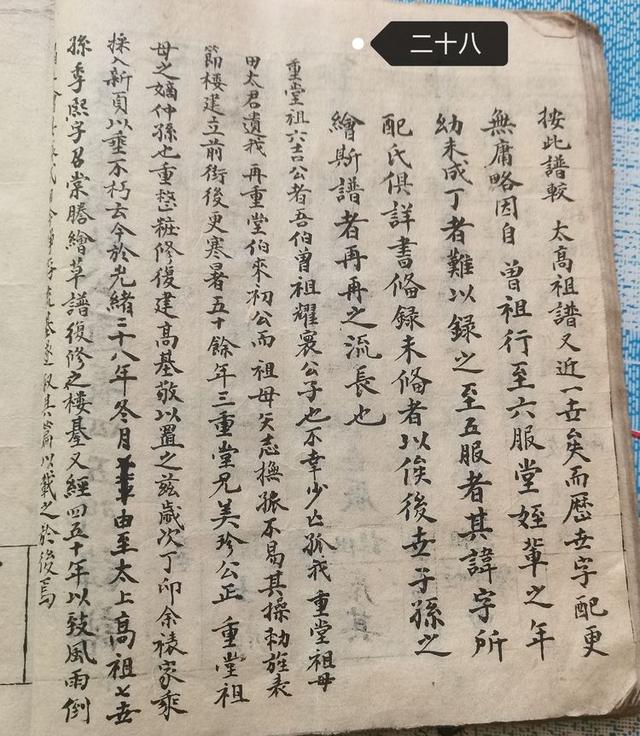 二十八
按此譜較 太高祖譜又近一世矣而歷世字配更
無庸略因自 曾祖行至六服堂姪輩之年
幼未成丁者難以録之至五服者其諱字所
配氏俱詳書俻録未俻者以俟後世子孫之
繪斯譜者再再之流長也
重堂祖六吉公者吾伯曾祖耀襄公子也不幸少亡孤我重堂祖母
田太君遺我再重堂伯來初公而 祖母矢志撫孤不易其操勅旌表
節樓建立前街後更寒暑五十餘年三重堂兄美珍公正 重堂祖
母之嫡仲孫也重整粧修復建高基敬以置之茲歲次丁卯余裱家乘
採入新頁以垂不朽去今於光緒二十八年冬月 由至太上高祖七世
孫季熙字召棠謄繪草譜復修之樓基又經四五十年以致風雨倒
取其篇以載之於後焉